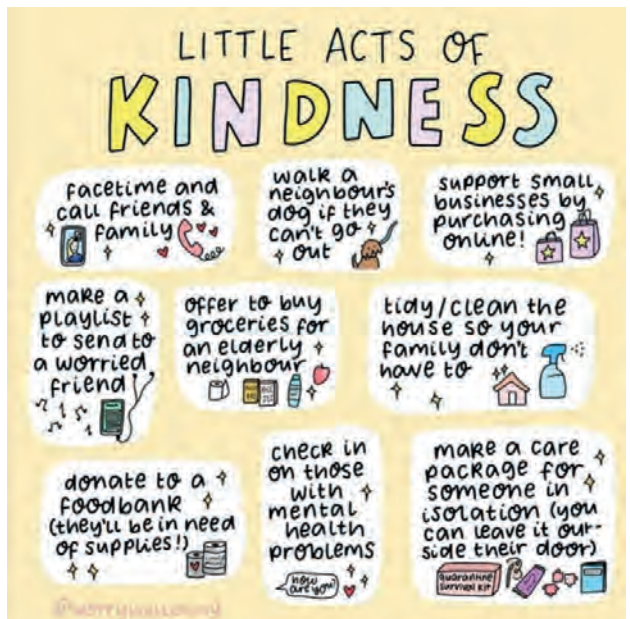 LITTLE ACTS OF
KINDNESS
facetime and
call friends &
family
walk a
neighbour's
dog if they
can't go
out
support small
businesses by
purchasing
online!
make a
playlist
to send to
a worried
friend
offer to buy
groceries for
an elderly
neighbour
tidy/clean the
house so your
family don't
have to
donate to a
foodbank
(they'll be in need
of supplies!)
check in
on those
with
mental
health
problems
how
are you?
make a care
package for
someone in
isolation (you
can leave it out-
side their door)
quarantine
survival kit